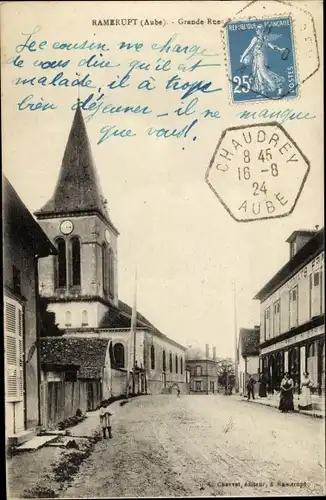 RAMERUPT (Aube) - Grande Rue
25c
POSTES
Le cousin me charge
de vous dire qu'il est
malade, il à trop
bien déjeuner - il ne manque
que vous!
CHAUDREY
8 45
16-8
24
AUBE
Charvot, éditeur, à Ramerupt